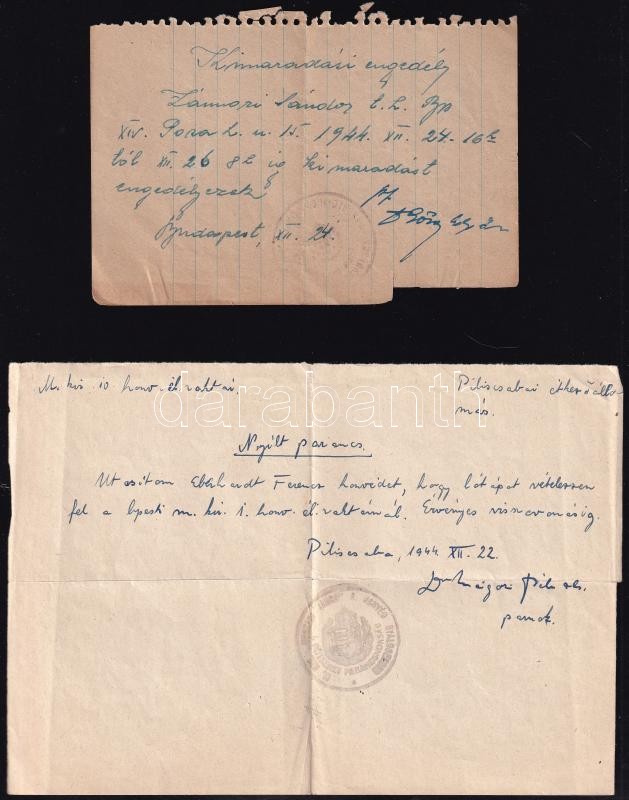 Kimaradási engedély
Zámori Sándor t. h. Bp
XIV. Posa L. u. 15. 1944. XII. 24. 16h
tól XII. 26 8h ig kimaradást
engedélyezek
Budapest, XII. 24.
M. kir. 10 honv. él. raktár.
Piliscsabai étkező állo-
más.
Nyílt parancs.
Utasítom Eberhardt Ferenc honvédet, hogy lótápot vételezzen
fel a bpesti m. kir. 1. honv. él. raktárnál. Érvényes visszavonásig.
Piliscsaba, 1944. XII. 22.
pamok.
darabanth